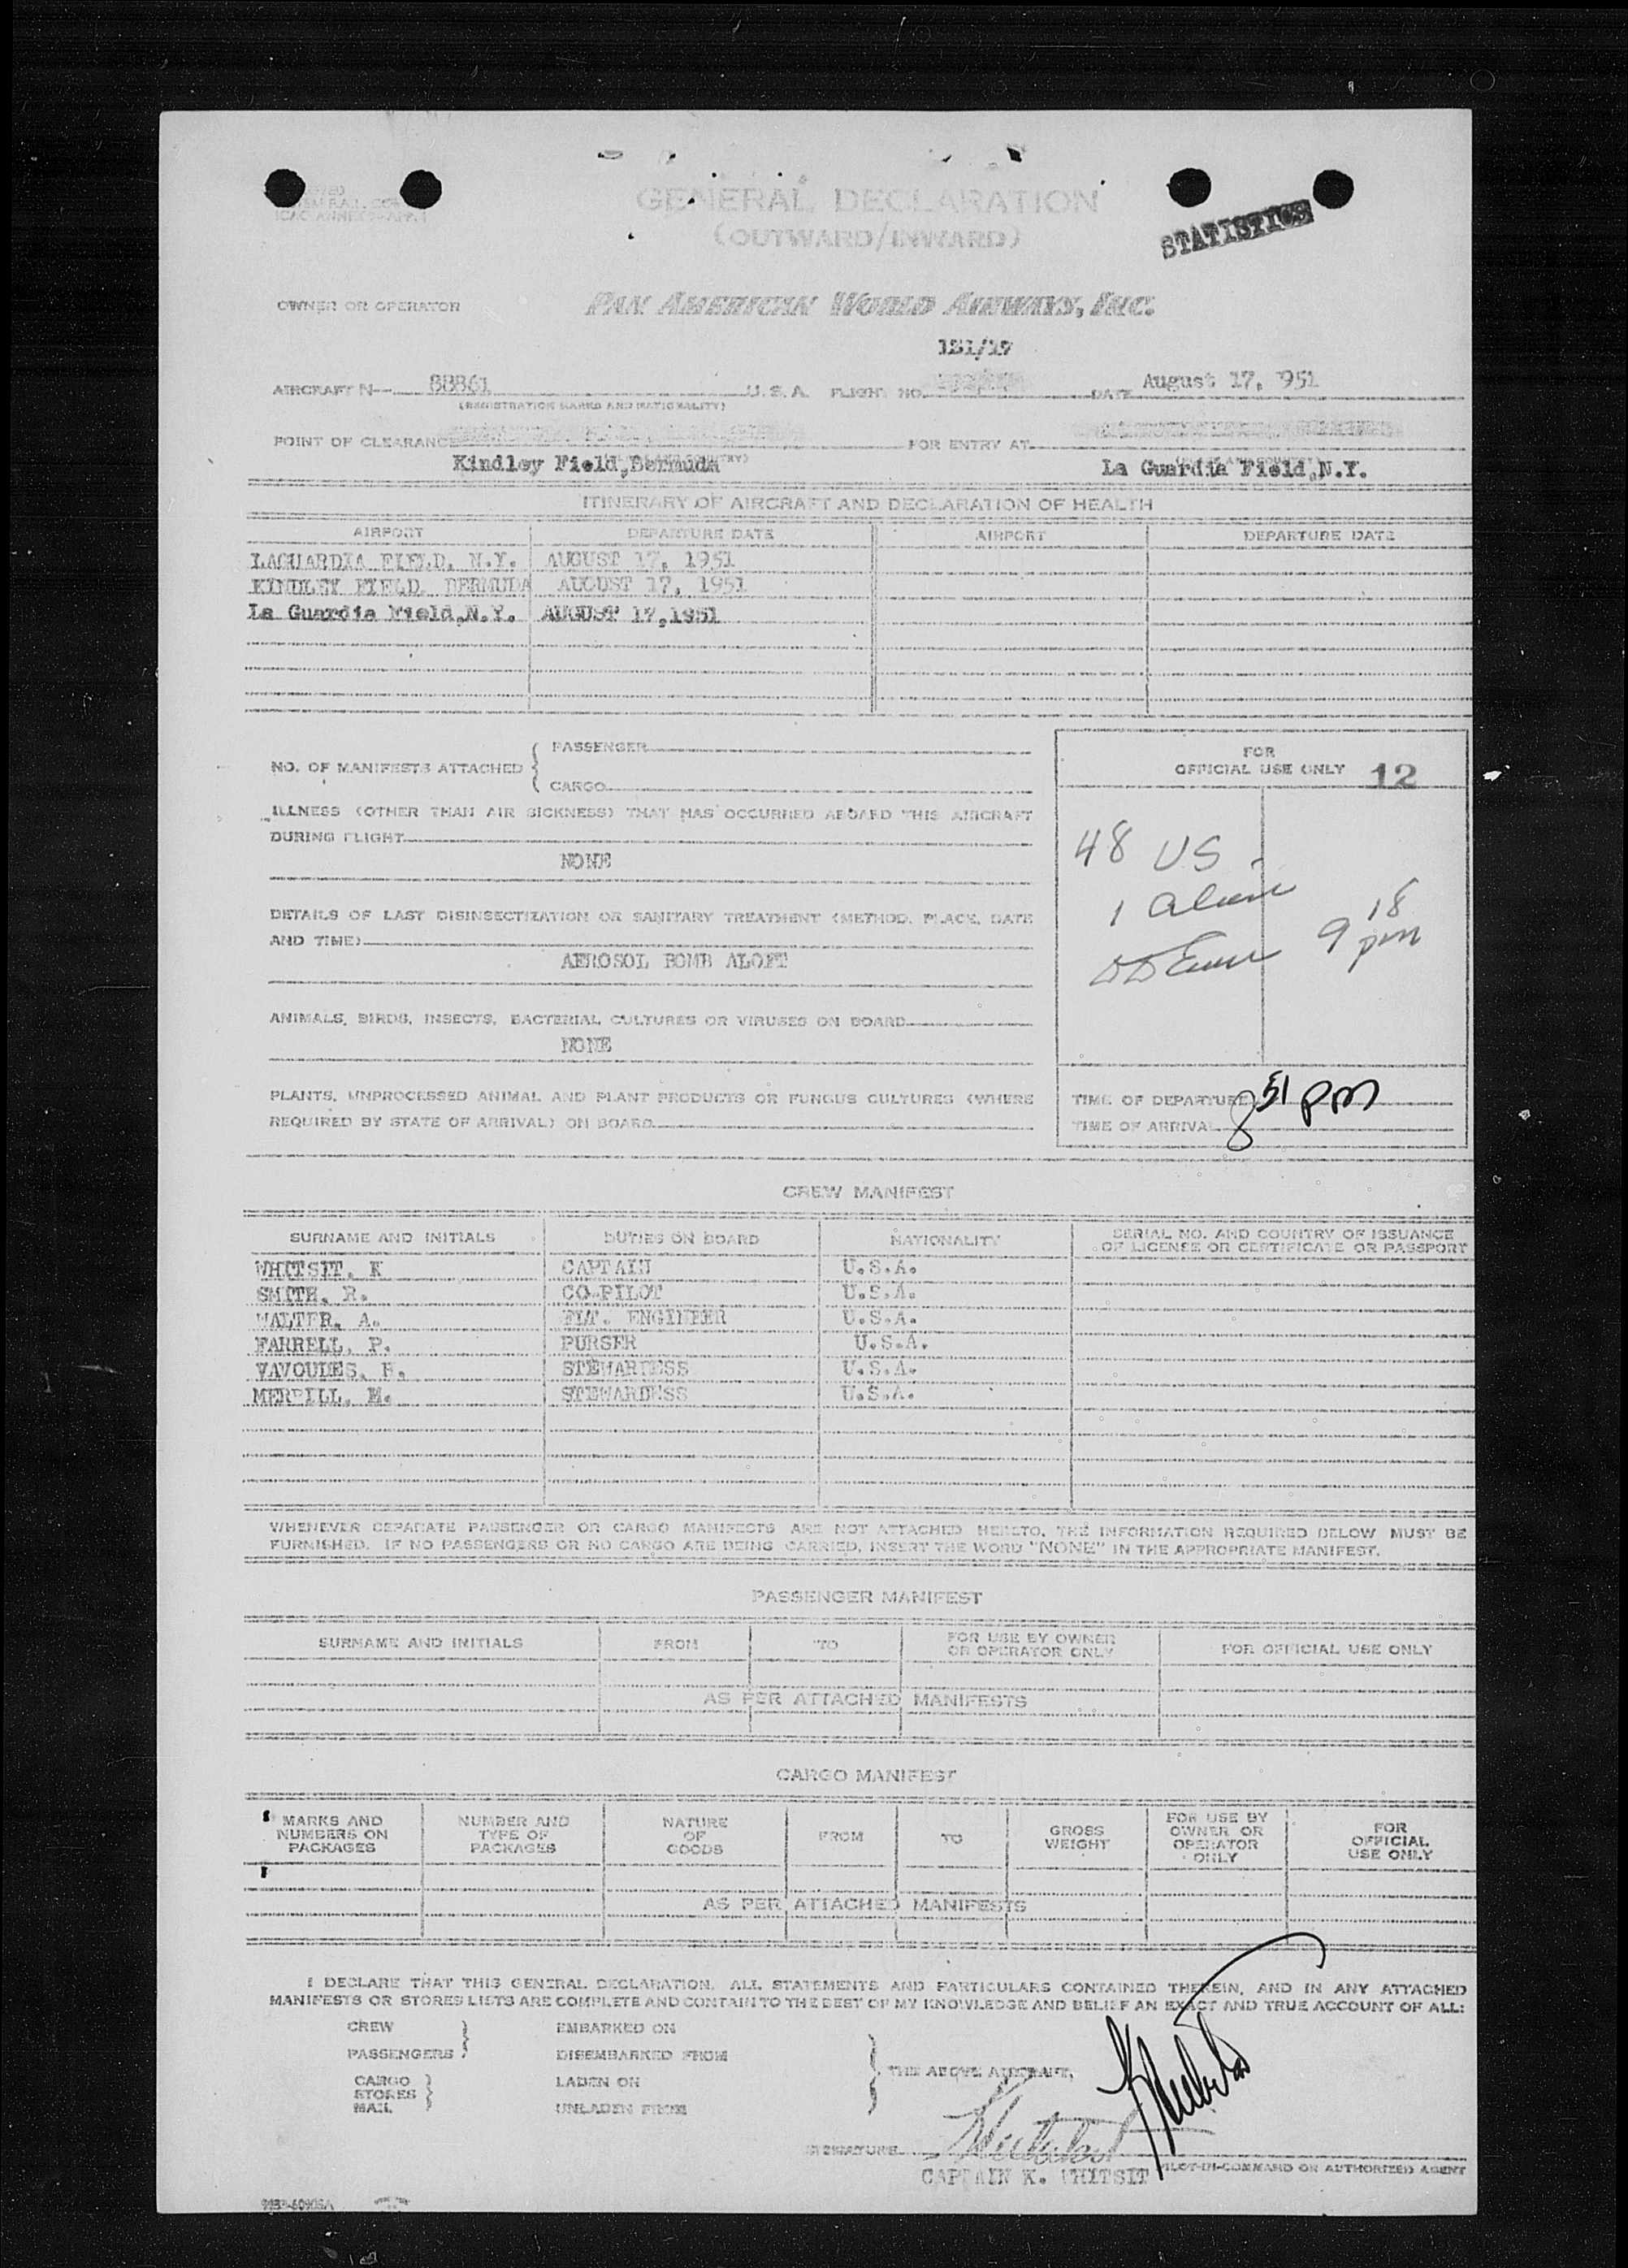 ICAO ANNEX 9-APP. 1
GENERAL DECLARATION
(OUTWARD/INWARD)
STATISTICS
OWNER OR OPERATOR PAN AMERICAN WORLD AIRWAYS, INC.
131/17
AIRCRAFT N— 88861 U. S. A. FLIGHT NO. DATE August 17, 951
(REGISTRATION MARKS AND NATIONALITY)
POINT OF CLEARANCE FOR ENTRY AT
Kindley Field, Bermuda La Guardia Field, N.Y.
ITINERARY OF AIRCRAFT AND DECLARATION OF HEALTH
AIRPORT DEPARTURE DATE AIRPORT DEPARTURE DATE
LAGUARDIA FIELD, N.Y. AUGUST 17, 1951
KINDLEY FIELD, BERMUDA AUGUST 17, 1951
La Guardia Field,N.Y. AUGUST 17,1951
NO. OF MANIFESTS ATTACHED { PASSENGER
CARGO
FOR
OFFICIAL USE ONLY 12
ILLNESS (OTHER THAN AIR SICKNESS) THAT HAS OCCURRED ABOARD THIS AIRCRAFT
DURING FLIGHT
NONE
48 US
1 alien
9 18 pm
DETAILS OF LAST DISINSECTIZATION OR SANITARY TREATMENT (METHOD, PLACE, DATE
AND TIME)
AEROSOL BOMB ALOFT
ANIMALS, BIRDS, INSECTS, BACTERIAL CULTURES OR VIRUSES ON BOARD
NONE
PLANTS, UNPROCESSED ANIMAL AND PLANT PRODUCTS OR FUNGUS CULTURES (WHERE
REQUIRED BY STATE OF ARRIVAL) ON BOARD
TIME OF DEPARTURE
TIME OF ARRIVAL 8 51 pm
CREW MANIFEST
SURNAME AND INITIALS DUTIES ON BOARD NATIONALITY SERIAL NO. AND COUNTRY OF ISSUANCE
OF LICENSE OR CERTIFICATE OR PASSPORT
WHITSIT, K CAPTAIN U.S.A.
SMITH, R. CO-PILOT U.S.A.
WALTER, A. FLT. ENGINEER U.S.A.
FARRELL, P. PURSER U.S.A.
VAVOUDES, H. STEWARDESS U.S.A.
MERRILL, M. STEWARDESS U.S.A.
WHENEVER SEPARATE PASSENGER OR CARGO MANIFESTS ARE NOT ATTACHED HERETO, THE INFORMATION REQUIRED BELOW MUST BE
FURNISHED. IF NO PASSENGERS OR NO CARGO ARE BEING CARRIED, INSERT THE WORD "NONE" IN THE APPROPRIATE MANIFEST.
PASSENGER MANIFEST
SURNAME AND INITIALS FROM TO FOR USE BY OWNER
OR OPERATOR ONLY FOR OFFICIAL USE ONLY
AS PER ATTACHED MANIFESTS
CARGO MANIFEST
MARKS AND
NUMBERS ON
PACKAGES NUMBER AND
TYPE OF
PACKAGES NATURE
OF
GOODS FROM TO GROSS
WEIGHT FOR USE BY
OWNER OR
OPERATOR
ONLY FOR
OFFICIAL
USE ONLY
AS PER ATTACHED MANIFESTS
I DECLARE THAT THIS GENERAL DECLARATION, ALL STATEMENTS AND PARTICULARS CONTAINED THEREIN, AND IN ANY ATTACHED
MANIFESTS OR STORES LISTS ARE COMPLETE AND CONTAIN TO THE BEST OF MY KNOWLEDGE AND BELIEF AN EXACT AND TRUE ACCOUNT OF ALL:
CREW EMBARKED ON
PASSENGERS DISEMBARKED FROM
THE ABOVE AIRCRAFT,
CARGO LADEN ON
STORES
MAIL UNLADEN FROM
SIGNATURE K Whitsit
CAPTAIN K. WHITSIT PILOT-IN-COMMAND OR AUTHORIZED AGENT